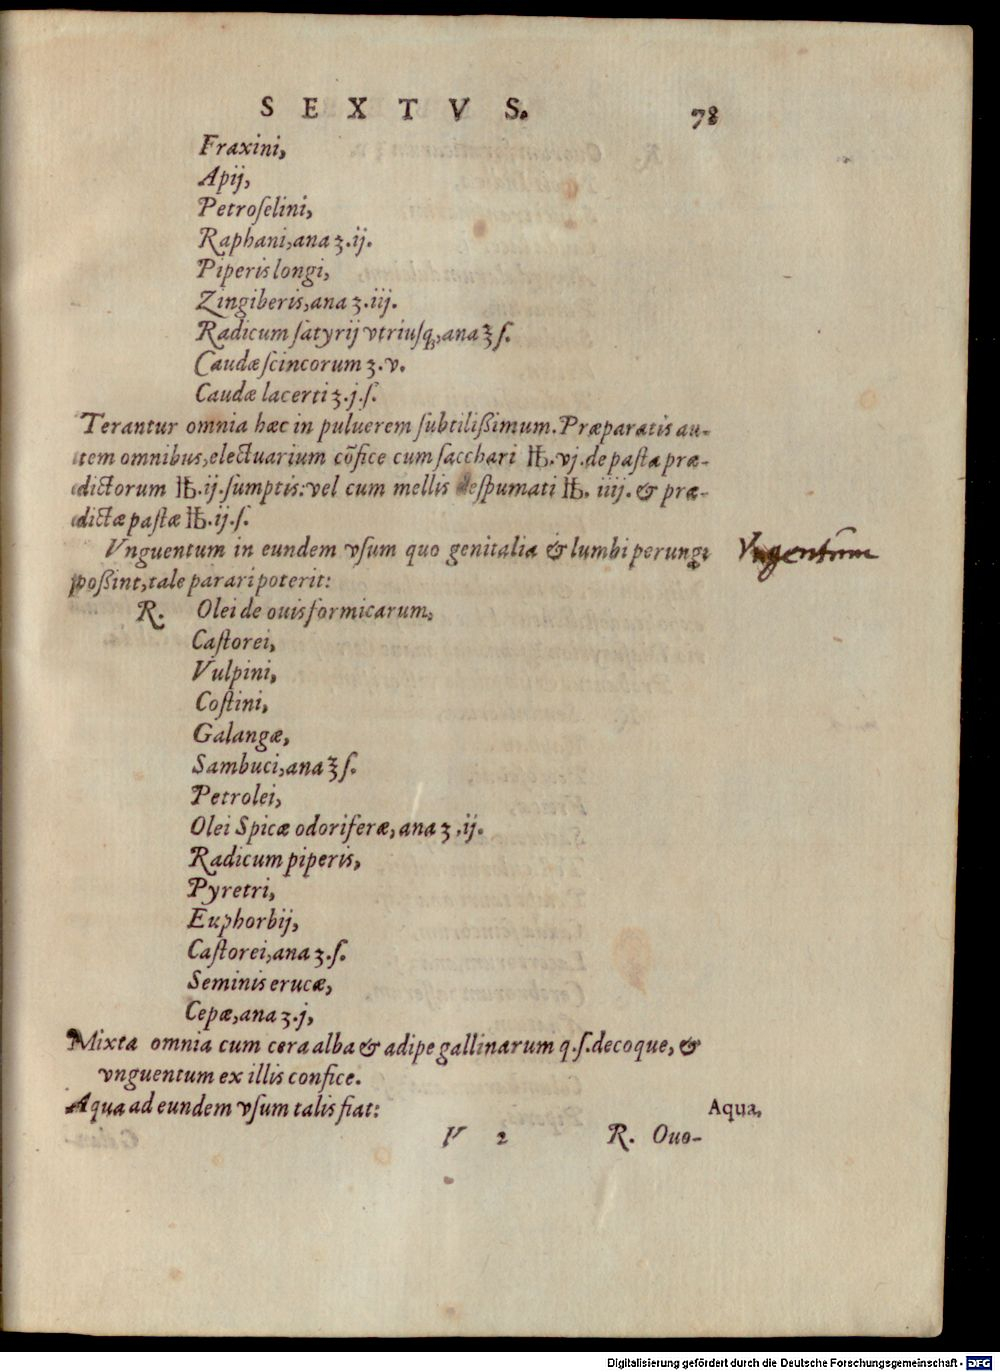 SEXTVS. 78
Fraxini,
Apij,
Petroſelini,
Raphani, ana ʒ. ij.
Piperis longi,
Zingiberis, ana ʒ. iij.
Radicum ſatyrij vtriuſq;, ana ℥ ſ.
Caudæ ſcincorum ʒ. v.
Caudæ lacerti ʒ. j. ſ.
Terantur omnia hæc in puluerem ſubtilißimum. Præparatis au-
tem omnibus, electuarium cõfice cum ſacchari ℔. vj. de paſta præ-
dictorum ℔. ij. ſumptis: vel cum mellis deſpumati ℔. iiij. & præ-
dictæ paſtæ ℔. ij. ſ.
Vnguentum in eundem vſum quo genitalia & lumbi perungi Vngentũm
poßint, tale parari poterit:
R. Olei de ouis formicarum,
Caſtorei,
Vulpini,
Coſtini,
Galangæ,
Sambuci, ana ℥ ſ.
Petrolei,
Olei Spicæ odoriferæ, ana ʒ. ij.
Radicum piperis,
Pyretri,
Euphorbij,
Caſtorei, ana ʒ. ſ.
Seminis erucæ,
Cepæ, ana ʒ. j,
Mixta omnia cum cera alba & adipe gallinarum q. ſ. decoque, &
vnguentum ex illis confice.
Aqua ad eundem vſum talis fiat: Aqua,
V 2 R. Ouo-
Digitalisierung gefördert durch die Deutsche Forschungsgemeinschaft - DFG